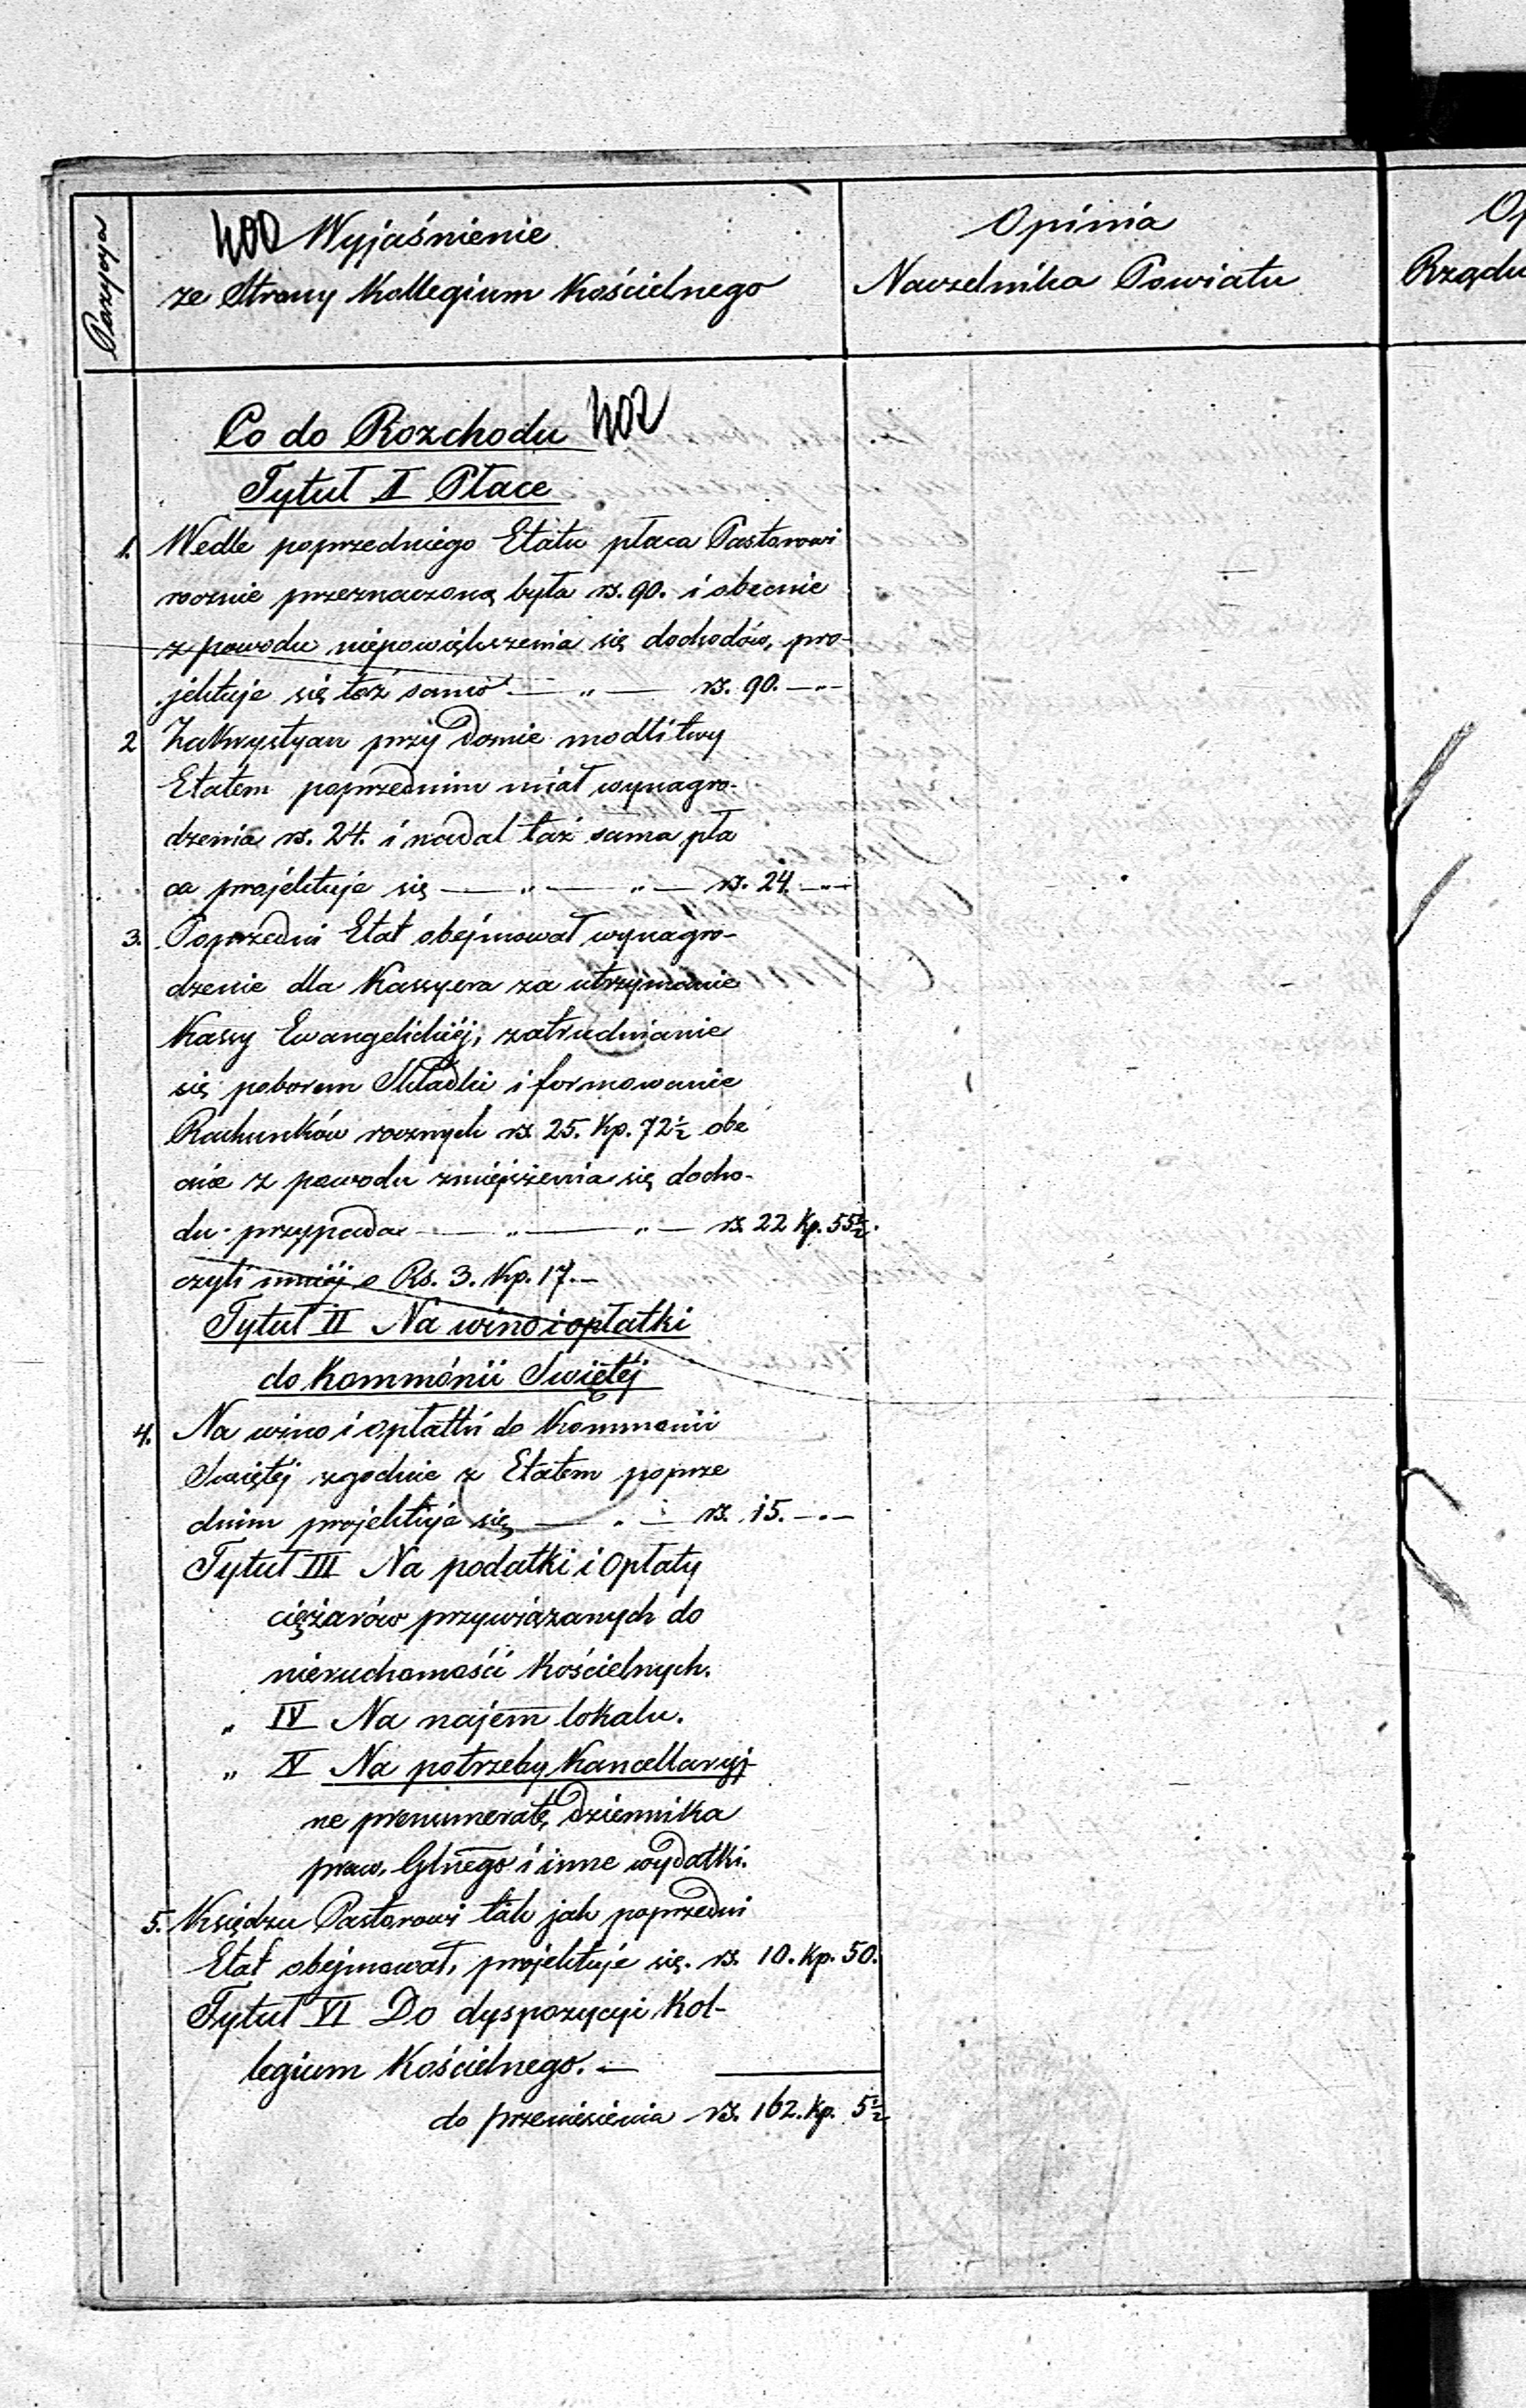 Pozycya
400 Wyjaśnienie
ze Strony Kollegium Kościelnego
Opinia
Naczelnika Powiatu
Op
Rządu
Co do Rozchodu 402
Tytuł I Płace
1. Wedle poprzedniego Etatu płaca Pastorowi
rocznie przeznaczoną była rs. 90. i obecnie
z powodu niepowiększenia się dochodów, pro-
jektuje się toż samo — „ — rs. 90. — „ —
2 Zakrystyan przy Domie modlitwy
Etatem poprzednim miał wynagro-
dzenia rs. 24. i nadal taż sama pła
ca projektuje się — „ — „ — rs. 24. — „ —
3. Poprzedni Etat obejmował wynagro-
dzenie dla Kassyera za utrzymanie
Kassy Ewangelickiéj, zatrudnianie
się poborem Składki i formowanie
Rachunków rocznych rs. 25. Kp. 72½ obe
cnie z powodu zmiejszenia się docho-
du przypada — „ — „ — rs. 22 Kp. 55½.
czyli mniéj o Rs. 3. Kp. 17. —
Tytuł II Na wino i opłatki
do Kommónii Swiętéj
4. Na wino i opłatki do Kommonii
Swiętéj zgodnie z Etatem poprze
dnim projektuje się — „ — rs. 15. — „ —
Tytuł III Na podatki i opłaty
ciężarów przywiązanych do
nieruchomości Kościelnych.
„ IV Na najem lokalu.
„ V Na potrzeby Kancellaryj-
ne prenumeratę Dziennika
praw. Glnego i inne wydatki.
5. Księdzu Pastorowi tak jak poprzedni
Etat obejmował, projektuje się. rs. 10. Kp. 50.
Tytuł VI Do dyspozycyi Kol-
legium Kościelnego. —
do przeniesienia rs. 162. Kp. 5½